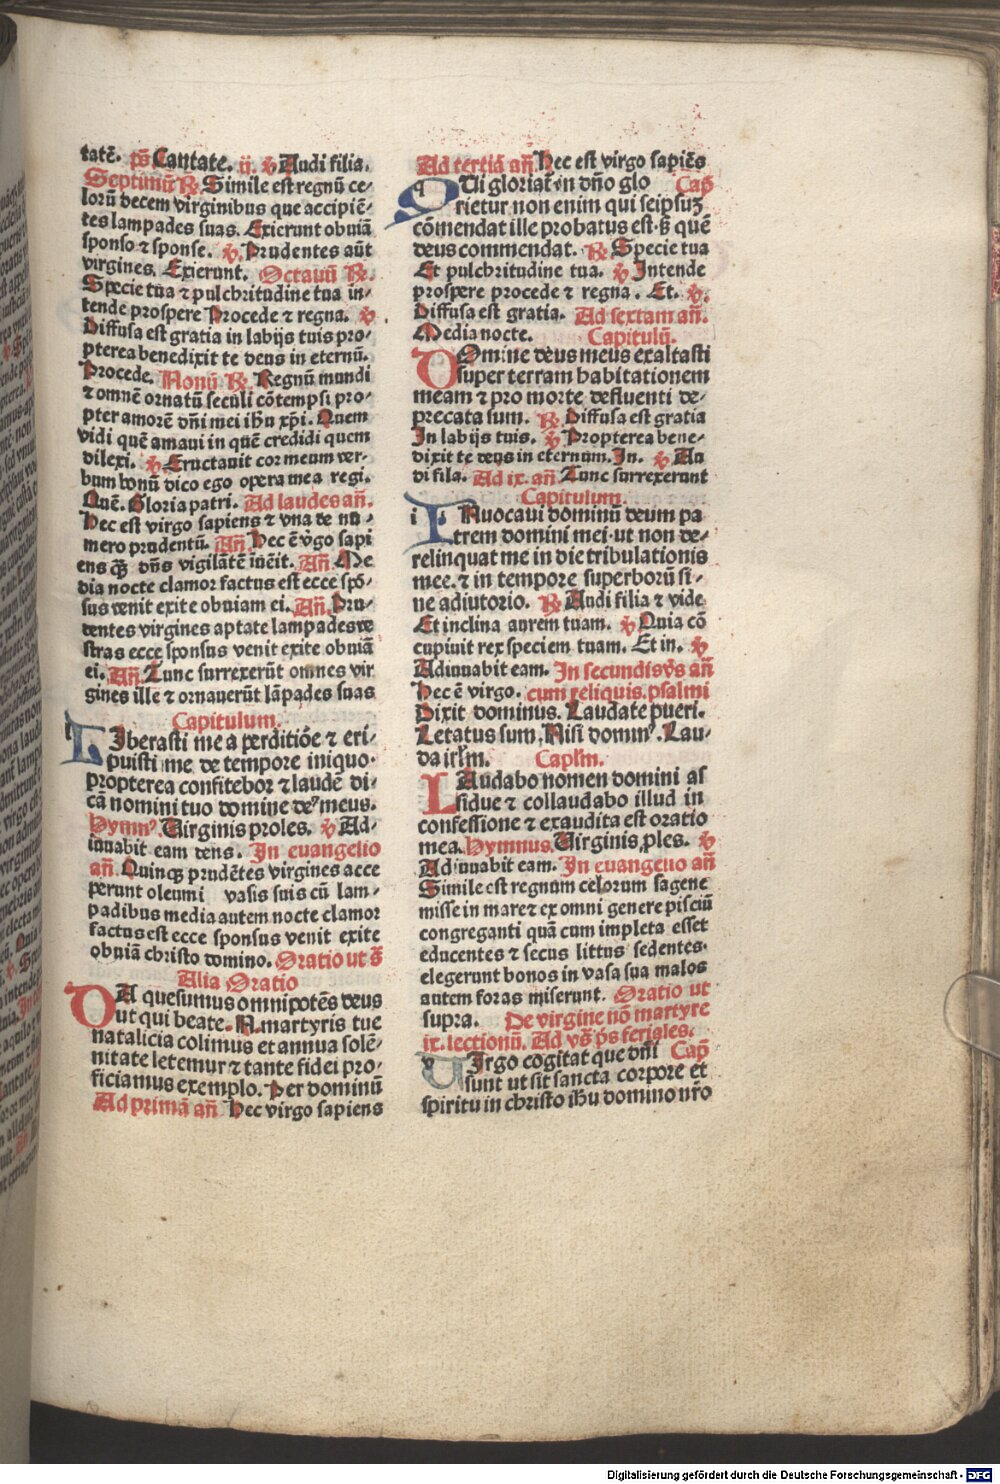 tatē. p̄s Cantate. ij. ℣ Audi filia.
Septimū ℟. Simile est regnū ce-
lorū decem virginibus que accipiē-
tes lampades suas. Exierunt obuiā
sponso ⁊ sponse. ℣. Prudentes aūt
virgines. Exierunt. Octauū ℟.
Specie tua ⁊ pulchritudine tua in-
tende prospere Procede ⁊ regna. ℣
Diffusa est gratia in labijs tuis pro-
pterea benedixit te deus in eternū.
Procede. Nonū ℟. Regnū mundi
⁊ omnē ornatū seculi cōtempsi pro-
pter amorē dn̄i mei ihū xp̄i. Quem
vidi quē amaui in quē credidi quem
dilexi. ℣ Eructauit cor meum ver-
bum bonū dico ego opera mea regi.
Quē. Gloria patri. Ad laudes an̄.
Hec est virgo sapiens ⁊ vna de nu-
mero prudentū. An̄. Hec ē v̓go sapi
ens qꝫ dn̄s vigilātē īuēit. An̄. Me
dia nocte clamor factus est ecce spō-
sus venit exite obuiam ei. An̄. Pru-
dentes virgines aptate lampades ve
stras ecce sponsus venit exite obuiā
ei. An̄. Tunc surrexerūt omnes vir
gines ille ⁊ ornauerūt lāpades suas
Capitulum.
LIberasti me a perditiōe ⁊ eri-
puisti me de tempore iniquo.
propterea confitebor ⁊ laudē di-
cā nomini tuo domine deꝰ meus.
Hymnꝰ. Virginis proles. ℣ Ad-
iuuabit eam deus. In euangelio
an̄. Quinqꝫ prudētes virgines acce
perunt oleum i vasis suis cū lam-
padibus media autem nocte clamor
factus est ecce sponsus venit exite
obuiā christo domino. Oratio ut s̄
Alia Oratio
DA quesumus omnipotēs deus
ut qui beate. N. martyris tue
natalicia colimus et annua solē-
nitate letemur ⁊ tante fidei pro-
ficiamus exemplo. Per dominū
Ad primā an̄ Hec virgo sapiens
Ad tertiā an̄ Hec est virgo sapiēs
q QUi gloriat̄ in dn̄o glo Cap̄
rietur non enim qui seipsuꝫ
cōmendat ille probatus est. sꝫ quē
deus commendat. ℟. Specie tua
Et pulchritudine tua. ℣ Intende
prospere procede ⁊ regna. Et. ℣.
Diffusa est gratia. Ad sextam an̄.
Media nocte. Capitulū.
DOmine deus meus exaltasti
super terram habitationem
meam ⁊ pro morte defluenti de-
precata sum. ℟ Diffusa est gratia
In labijs tuis. ℣ Propterea bene-
dixit te deus in eternum. In. ℣ Au
di fila. Ad ix. an̄ Tunc surrexerunt
Capitulum.
i INuocaui dominū deum pa
trem domini mei. ut non de-
relinquat me in die tribulationis
mee. ⁊ in tempore superborū si-
ne adiutorio. ℟ Audi filia ⁊ vide
Et inclina aurem tuam. ℣ Quia cō
cupiuit rex speciem tuam. Et in. ℣
Adiuuabit eam. In secundis vs̄ an̄
Hec ē virgo. cum reliquis. psalmi
Dixit dominus. Laudate pueri.
Letatus sum. Nisi domin̄ꝰ. Lau-
da irl̄m. Capl̄m.
LAudabo nomen domini as
sidue ⁊ collaudabo illud in
confessione ⁊ exaudita est oratio
mea. Hymnus. Virginis ꝓles. ℣
Adiuuabit eam. In euangelio an̄
Simile est regnum celorum sagene
misse in mare ⁊ ex omni genere pisciū
congreganti quā cum impleta esset
educentes ⁊ secus littus sedentes.
elegerunt bonos in vasa sua malos
autem foras miserunt. Oratio ut
supra. De virgine nō martyre
ix. lectionū. Ad vs̄ p̄s feriales.
v VIrgo cogitat que dn̄i Cap̄
sunt ut sit sancta corpore et
spiritu in christo ihū domino nr̄o
Digitalisierung gefördert durch die Deutsche Forschungsgemeinschaft - DFG